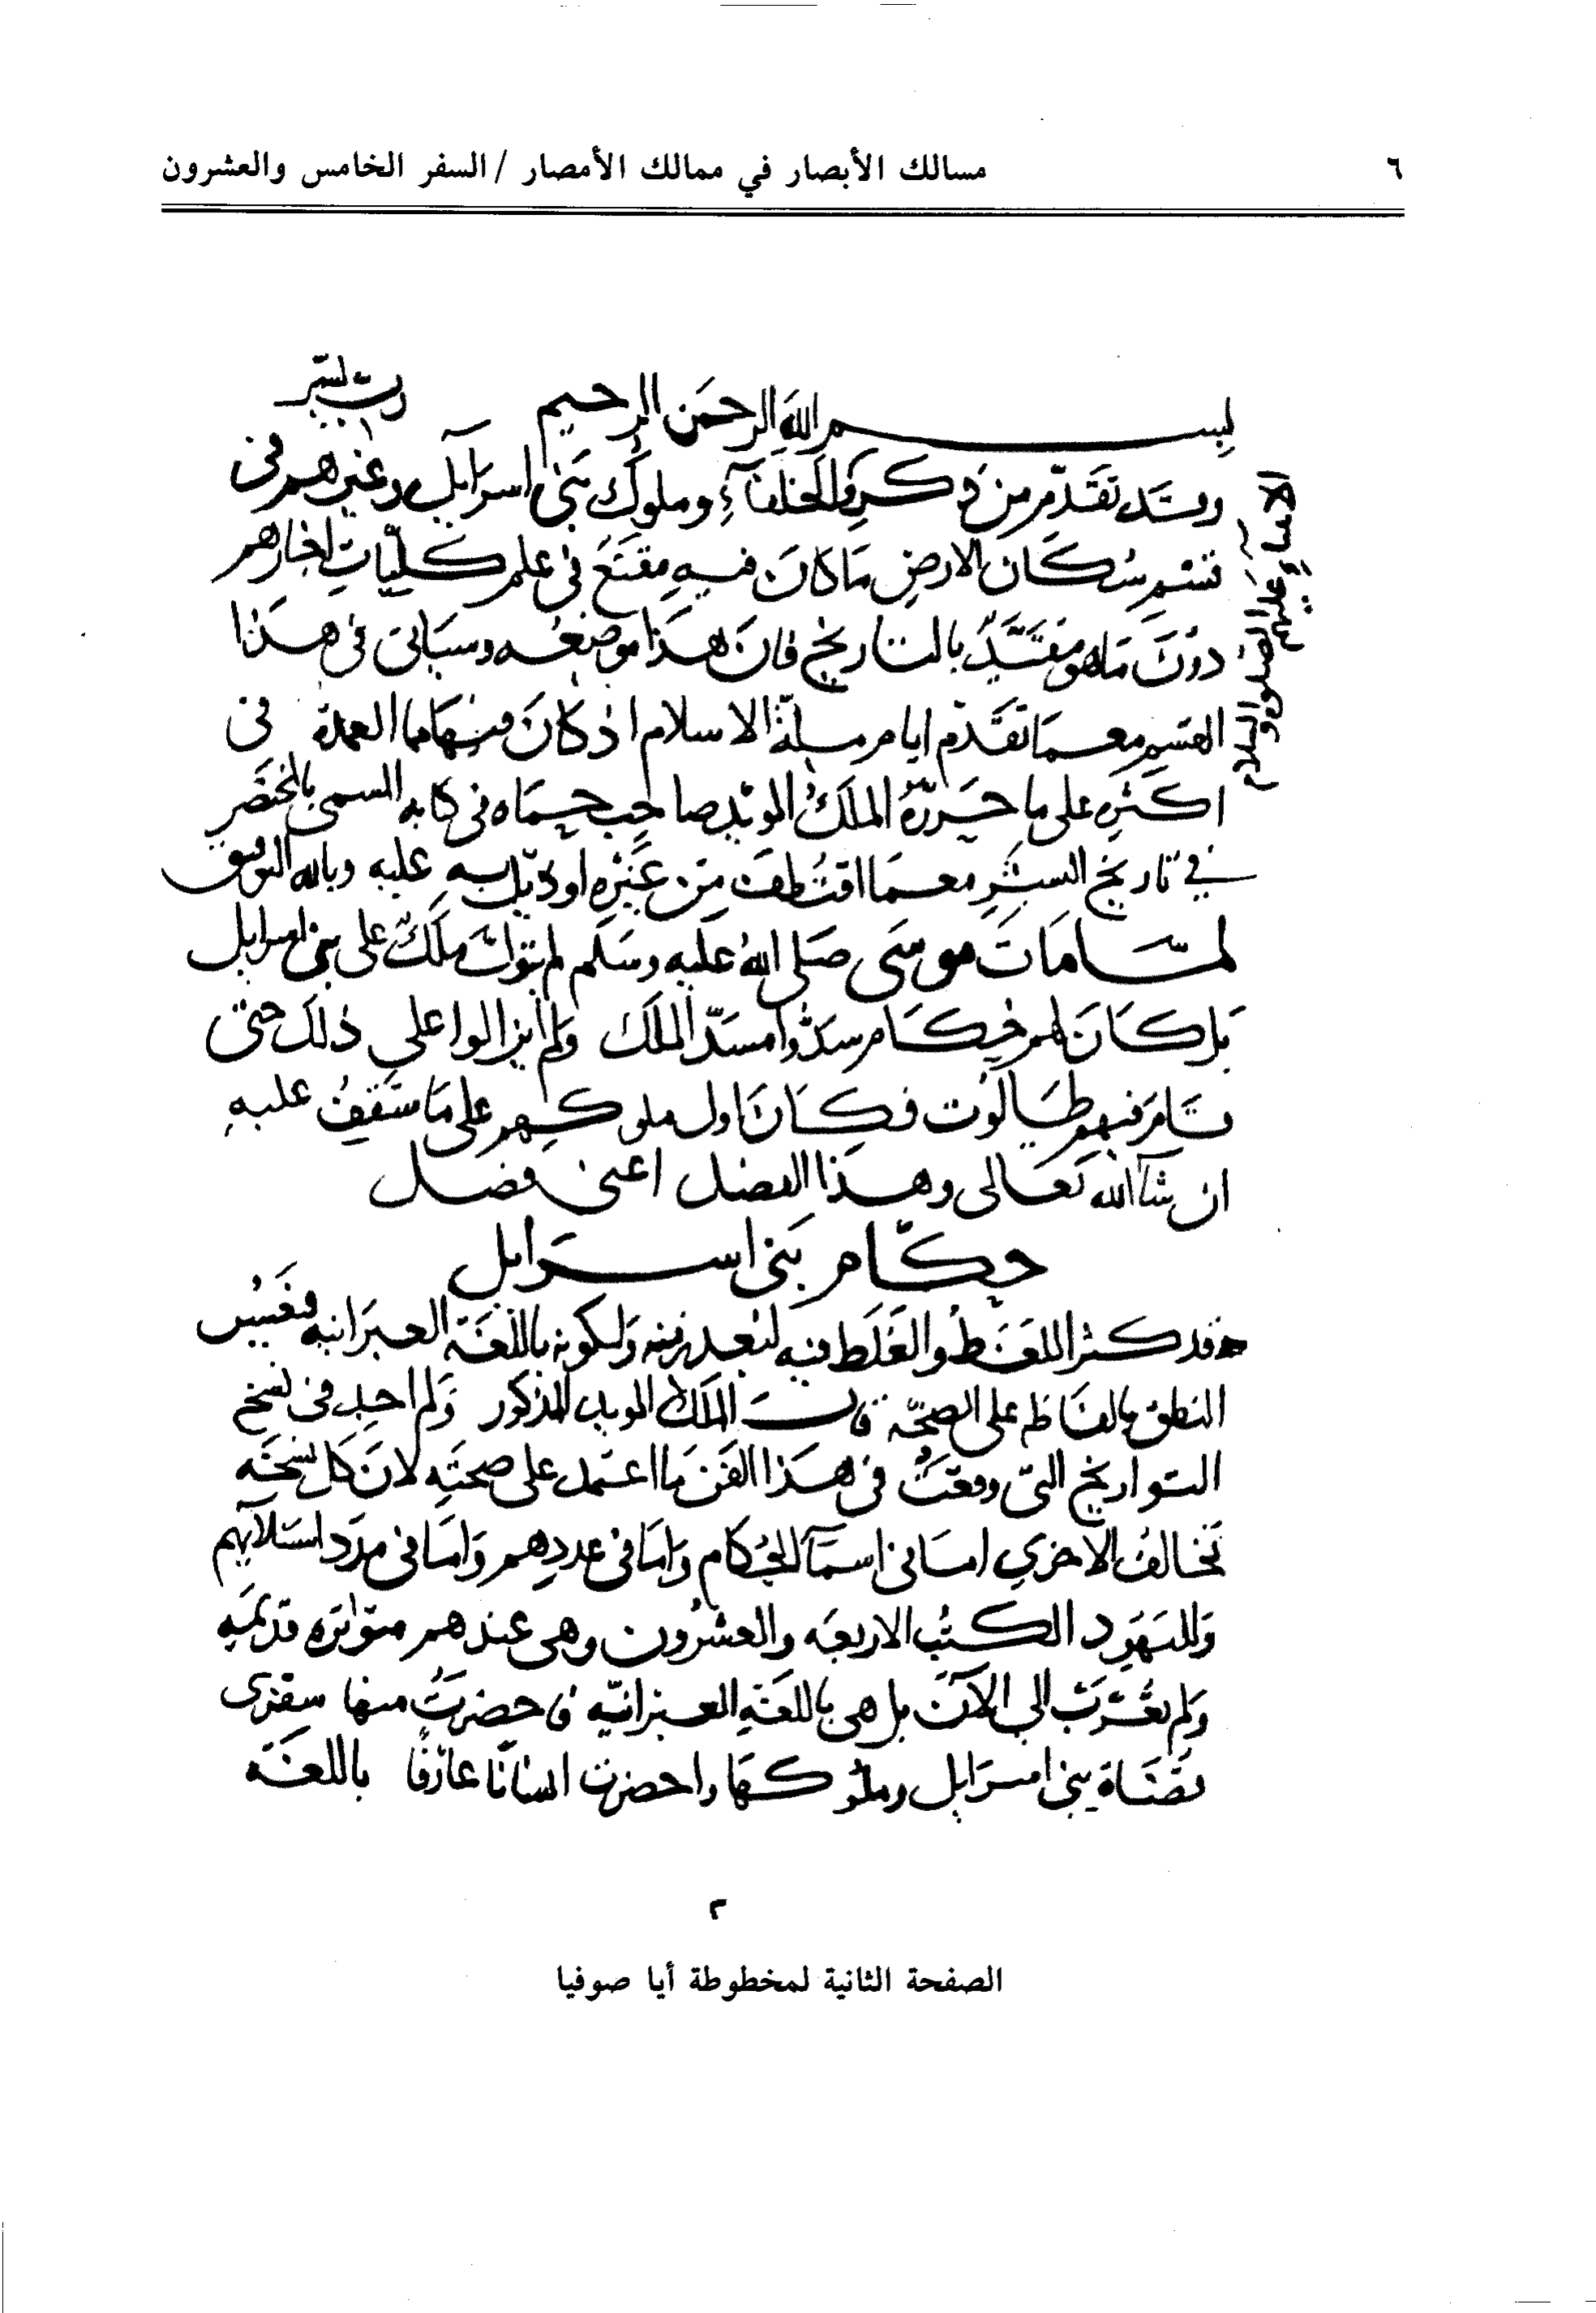 ٦
مسالك الأبصار في ممالك الأمصار / السفر الخامس والعشرون
رب يسر
بسم الله الرحمن الرحيم
وقد تقدم من ذكر والخلفاء وملوك بني اسرايل وغيرهم في
الانبياء عليهم الصلوة والسلام
قسم سكان الارض ما كان فيه مقنع في علم كليات اخبارهم
دون ما هو مقيد بالتاريخ فان هذا موضعه وسياتي في هذا
القسم معما تقدم ايام ملة الاسلام اذ كان منهاما العمدة في
اكثره على ما حرره الملك المويد صاحب حماه في كتابه المسمى بالمختصر
في تاريخ البشر معما اقتطف من غيره او ذيل به عليه وبالله التوفيق
لما مات موسى صلى الله عليه وسلم لم يتول ملك على بني اسرايل
بل كان لهم حكام سدوا مسد الملك ولم يزالوا على ذلك حتى
قام فيهم طالوت فكان اول ملوكهم على ما ستقف عليه
ان شاء الله تعالى وهذا الفصل اعني فصل
حكام بني اسرايل
قد كثر اللغط والغلط فيه لبعد زمنه ولكونه باللغة العبرانيه فتعسر
النطق بالفاظه على الصحة قال الملك المويد المذكور ولم اجد في نسخ
التواريخ التي وقعت في هذا الفن ما اعتمد على صحته لان كل نسخه
تخالف الاخرى اما في اسماء الحكام واما في عددهم واما في مدد استلايهم
ولليهود الكتب الاربعه والعشرون وهي عندهم متواتره قديمه
ولم تعرب الى الآن بل هي باللغة العبرانيه فاحضرت منها سفرى
قضاة بني اسرايل وملوكها واحضرت انسانا عارفا باللغة
٢
الصفحة الثانية لمخطوطة أيا صوفيا